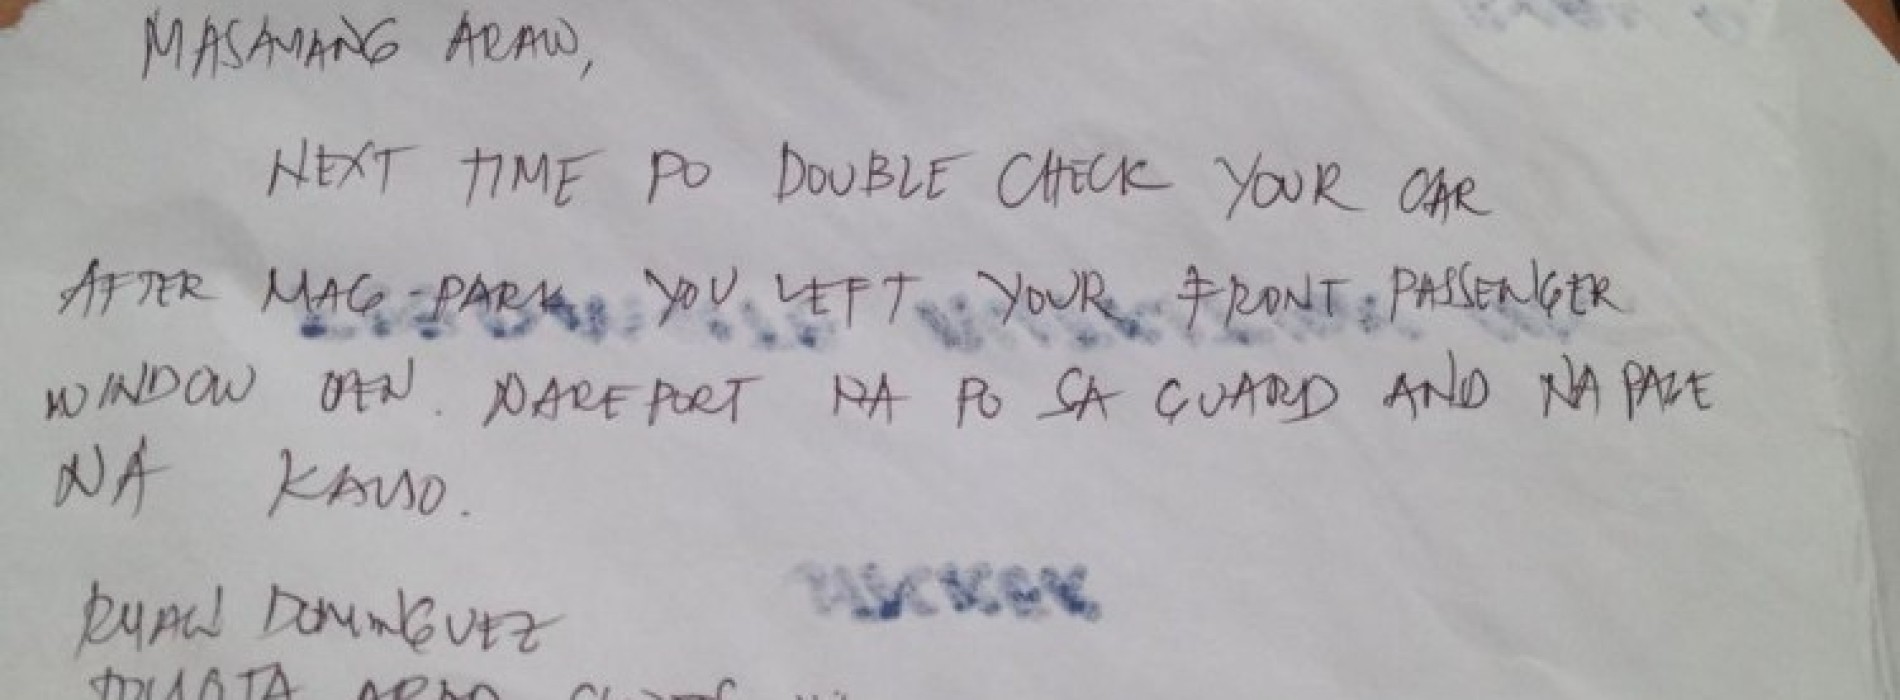 MASAYANG ARAW,
NEXT TIME PO DOUBLE CHECK YOUR CAR
AFTER MAG-PARK. YOU LEFT YOUR FRONT PASSENGER
WINDOW OPEN. NAREPORT NA PO SA GUARD AND NA PAGE
NA KAYO.
RYAN DOMINGUEZ
TOYOTA